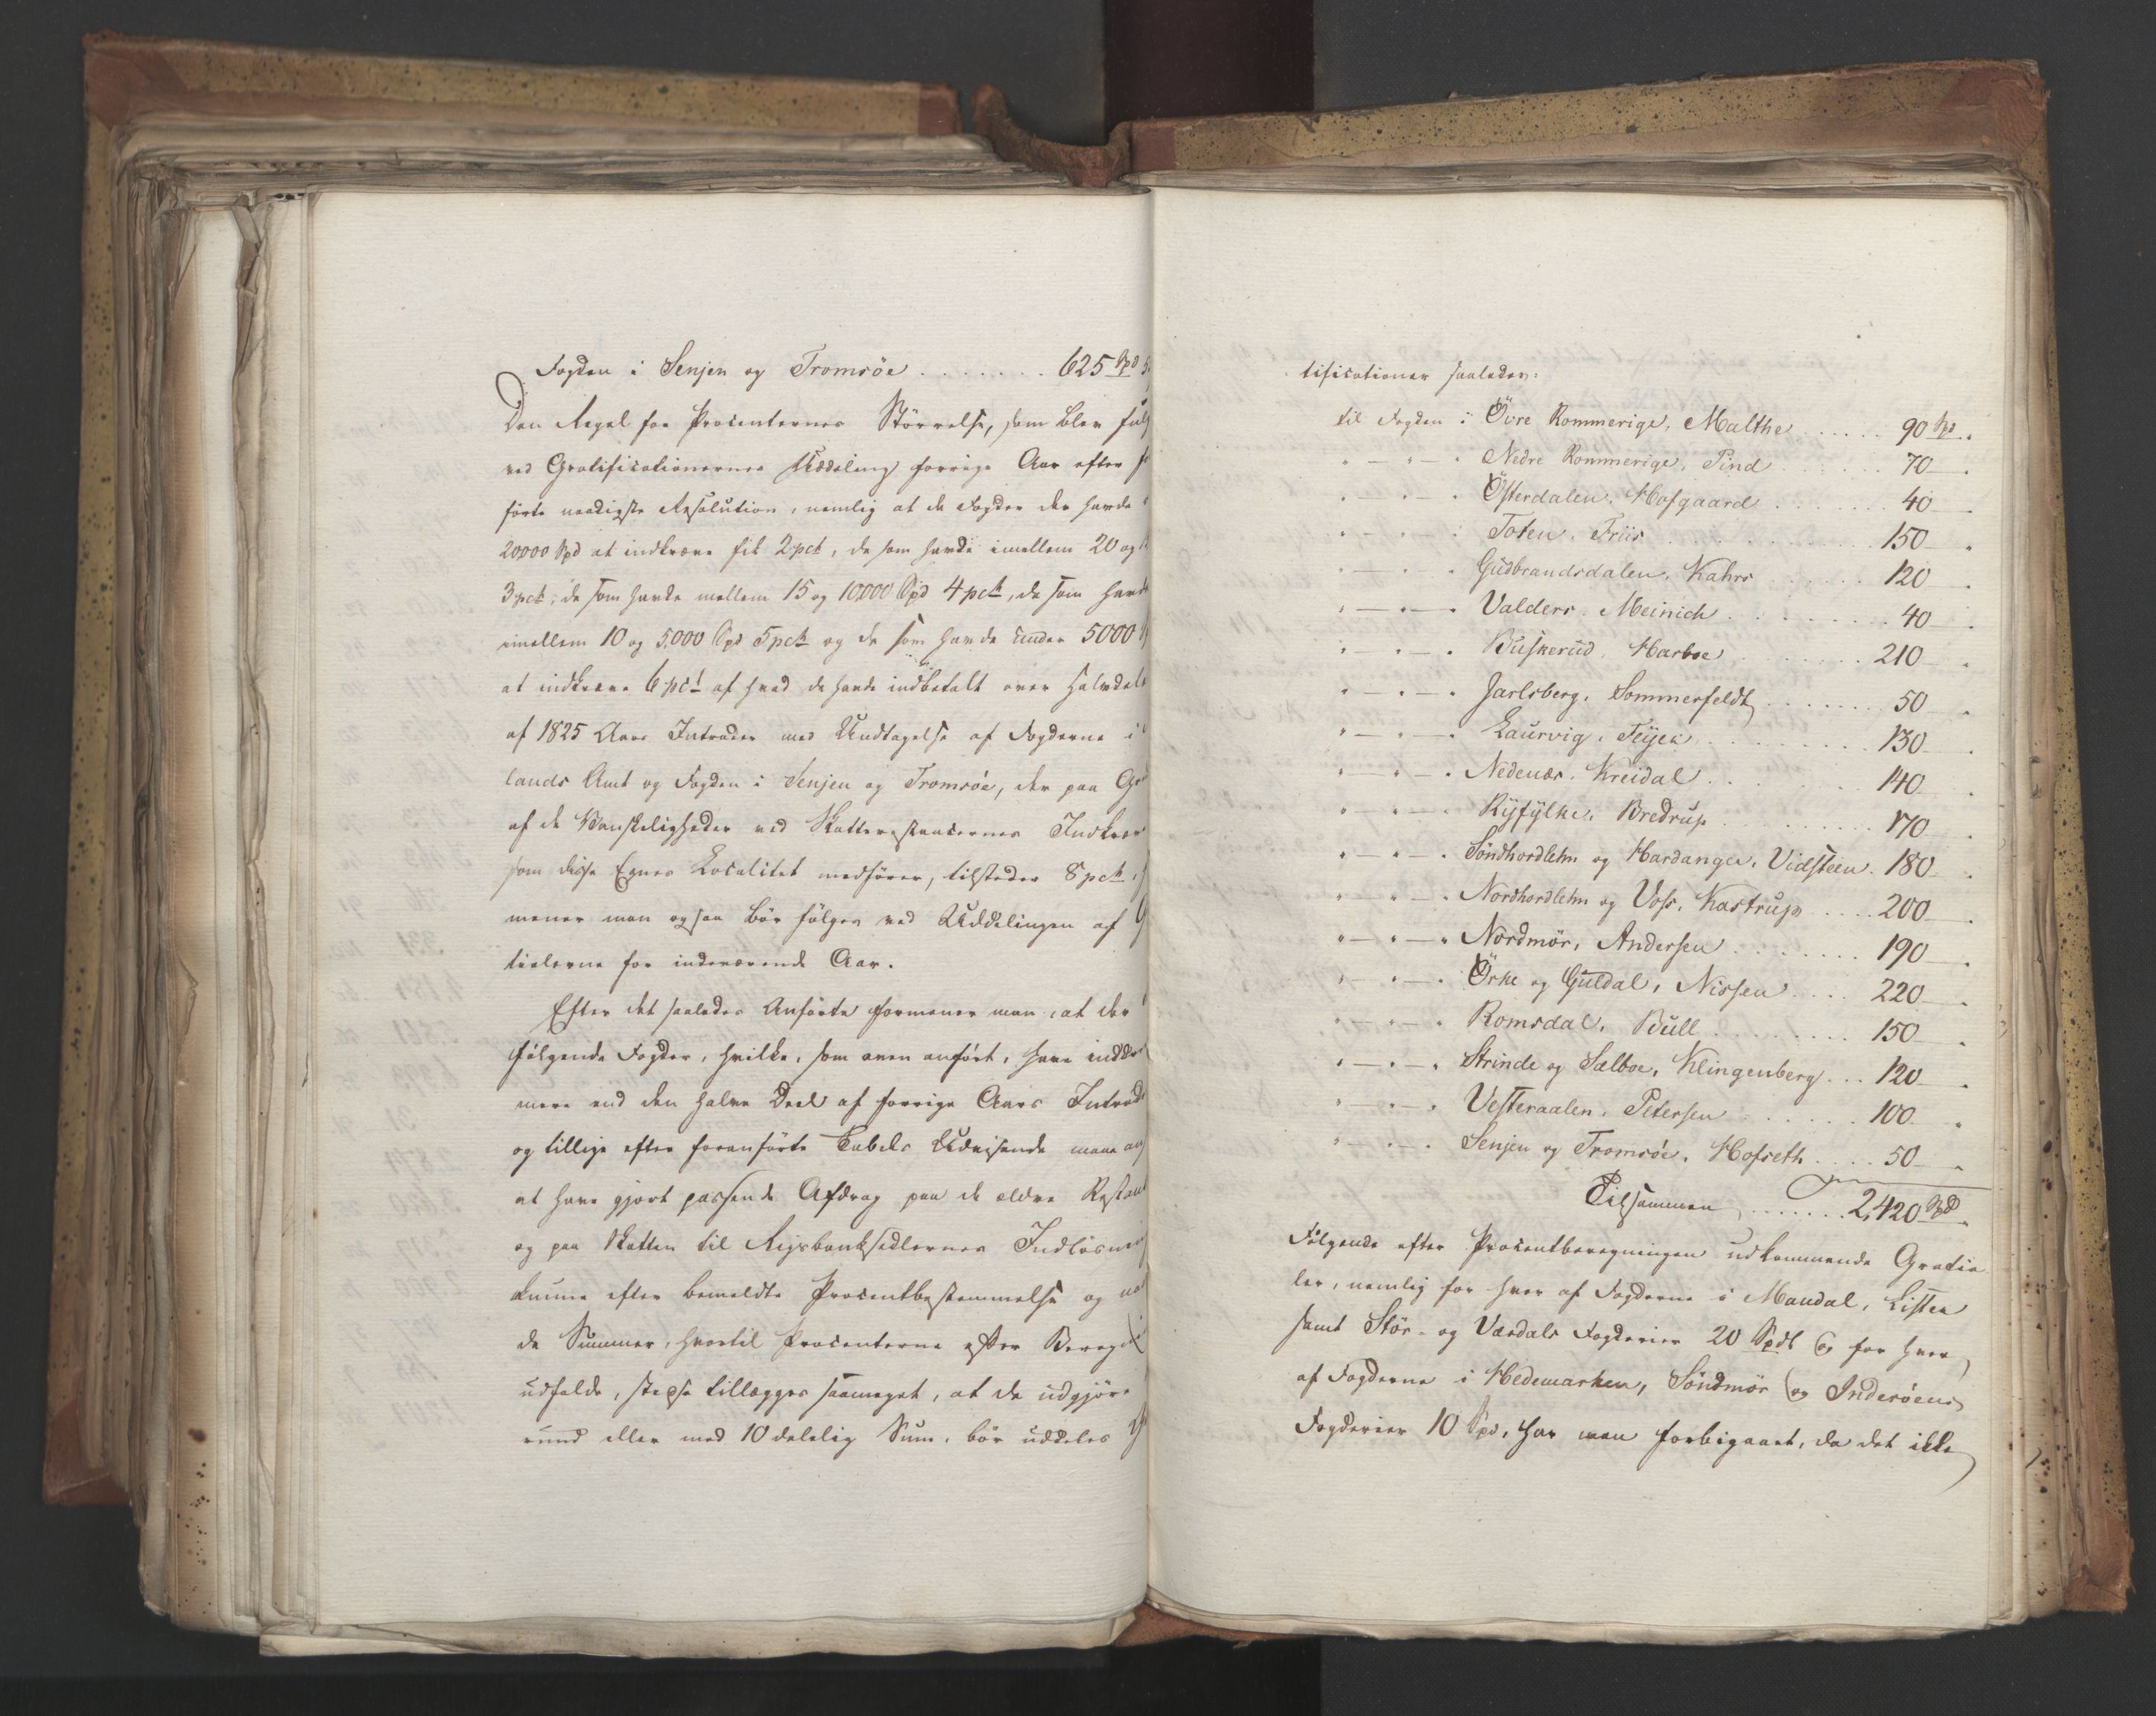 Fogden i Senjen og Tromsöe . . . . . . . 625 Spd
Den Regel for Procenternes Störrelse, som blev
ved Gratificationernes Uddeling forrige Aar efter
förte naadigste Resolution, nemlig at de Fogder der havde
20000 Spd at indkræve fik 2 pct, de som havde imellem 20 og
3 pct, de som havde mellem 15 og 10,000 Spd 4 pct, de som havde
imellem 10 og 5,000 Spd 5 pct og de som havde under 5000
at indkræve 6 pct af hvad de havde indbetalt over Halvdelen
af 1825 Aars Intrader med Undtagelse af Fogderne i
lands Amt og Fogden i Senjen og Tromsöe, der paa
af de Vanskeligheder ved Skatterestancernes
som disse Egnes Localitet medförer, tilstodes 8 pct,
mener man ogsaa bör fölges ved Uddelingen af
tialerne for indeværende Aar.
Efter det saaledes Anförte formener man, at der
fölgende Fogder, hvilke, som oven anfört, have
mere end den halve Deel af forrige Aars
og tillige efter foranförte Tabels Udvisende maae
at have gjort passende Afdrag paa de ældre
og paa Skatten til Rigsbanksedlernes
kunne efter bemeldte Procentbestemmelse og
de Summer, hvortil Procenterne efter
udfalde, tillægges saameget, at de udgjöre
rund eller med 10 delelig Sum, bör uddeles
tificationer saaledes:
til Fogden i Övre Rommerige, Malthe . . . . . 90 Spd.
" — " — " Nedre Rommerige, Pind . . . . . 70 — "
" — " — " Österdalen, Hofgaard . . . . . . . 40 — "
" — " — " Toten, Friis . . . . . . . . . . . 150 — "
" — " — " Gudbrandsdalen, Kahrs . . . . . 120 — "
" — " — " Valders, Meinich . . . . . . . 40 — "
" — " — " Buskerud, Harboe . . . . . . . 210 — "
" — " — " Jarlsberg, Sommerfeldt . . . . . . 50 — "
" — " — " Laurvig, . . . . . . . . . . 130 — "
" — " — " Nedenæs, Kreidal . . . . . . . 140 — "
" — " — " Ryfylke, Bredrup . . . . . . . . 170 — "
" — " — " Söndhordlehn og Hardanger, Vidsteen . 180 — "
" — " — " Nordhordlehn og Voss, Kastrup . . . . 200 — "
" — " — " Nordmör, Andersen . . . . . . . 190 — "
" — " — " Örke og Guldal, Nissen . . . . 220 — "
" — " — " Romsdal, Bull . . . . . . . . 150 — "
" — " — " Strinde og Sælboe, Klingenberg . . . 120 — "
" — " — " Vesteraalen, Petersen . . . . . . 100 — "
" — " — " Senjen og Tromsöe, Hofseth . . . . 50 — "
Tilsammen . . . . . . . 2,420 Spd.
Fölgende efter Procentberegningen udkommende Gratia
ler, nemlig for hver af Fogderne i Mandal, Lister
samt Stör- og Værdals Fogderier 20 Spd og for hver
af Fogderne i Hedemarken, Söndmör og Inderöens
Fogderier 10 Spd, har man forbigaaet, da det ikke